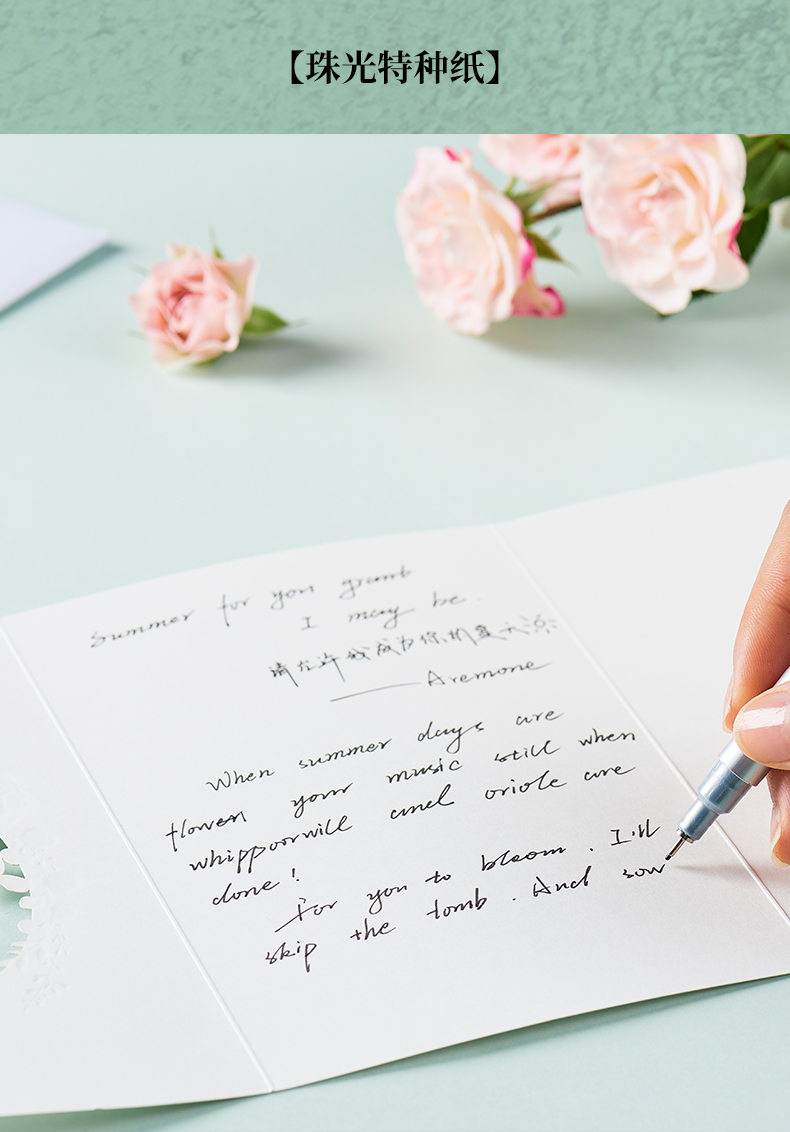 【珠光特种纸】
summer for you grant
I may be.
请允许我成为你的夏天
——Aremone
When summer days are
flowen your music still when
whippoorwill and oriole are
done!
For you to bloom. I'll
skip the tomb. And sow